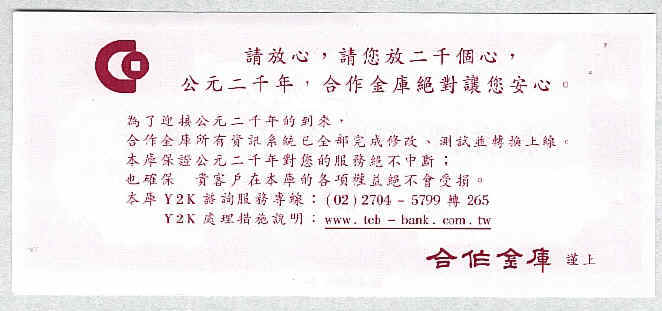 請放心，請您放二千個心，
公元二千年，合作金庫絕對讓您安心。
為了迎接公元二千年的到來，
合作金庫所有資訊系統已全部完成修改、測試並轉換上線。
本庫保證公元二千年對您的服務絕不中斷；
也確保　貴客戶在本庫的各項權益絕不會受損。
本庫 Y2K 諮詢服務專線：(02) 2704 - 5799 轉 265
Y2K 處理措施說明：www. tcb - bank. com. tw
合作金庫 謹上